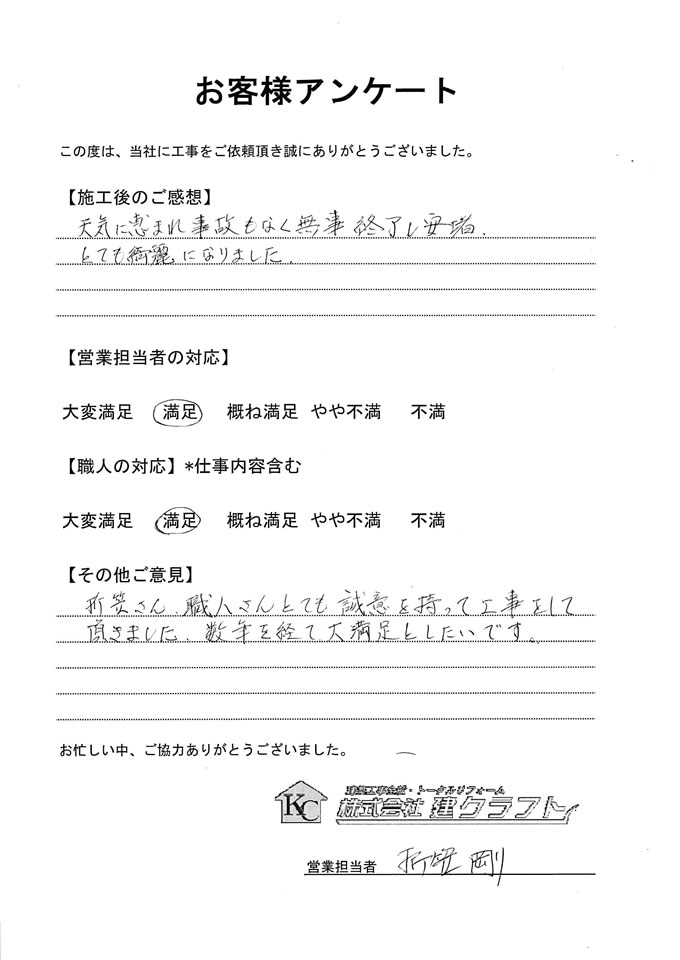 お客様アンケート
この度は、当社に工事をご依頼頂き誠にありがとうございました。
【施工後のご感想】
天気に恵まれ事故もなく無事終了し安堵.
とても綺麗になりました.
【営業担当者の対応】
大変満足 満足 概ね満足 やや不満 不満
【職人の対応】*仕事内容含む
大変満足 満足 概ね満足 やや不満 不満
【その他ご意見】
折笠さん、職人さんとても誠意を持って工事をして
頂きました、数年を経て大満足としたいです。
お忙しい中、ご協力ありがとうございました。
KC
建築工事全般・トータルリフォーム
株式会社 建クラフト
営業担当者 折笠 剛